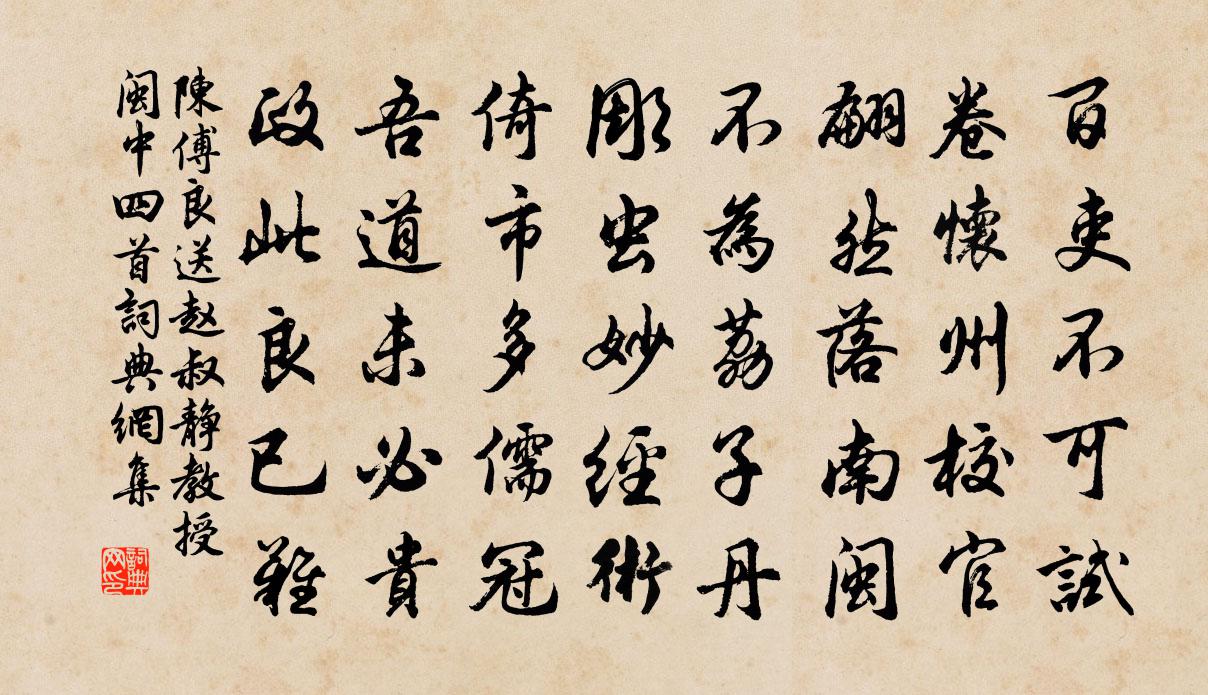 百吏不可試
卷懷州校官
翩然落南閩
不為荔子丹
彫虫妙經術
倚市多儒冠
吾道未必貴
政此良已難
陳傅良送赵叔靜教授
閩中四首詞典網集
詞典网印